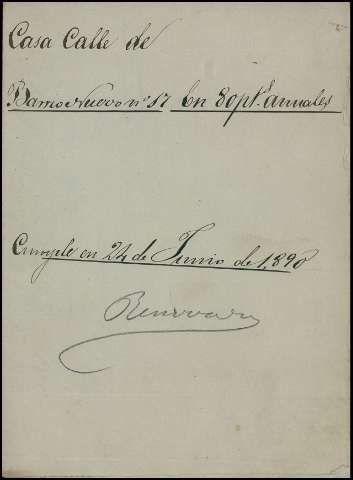 Casa Calle de
Barrio Nuevo nº 17 En 80 pts. anuales
Cumple en 24 de Junio de 1,890
Renovada